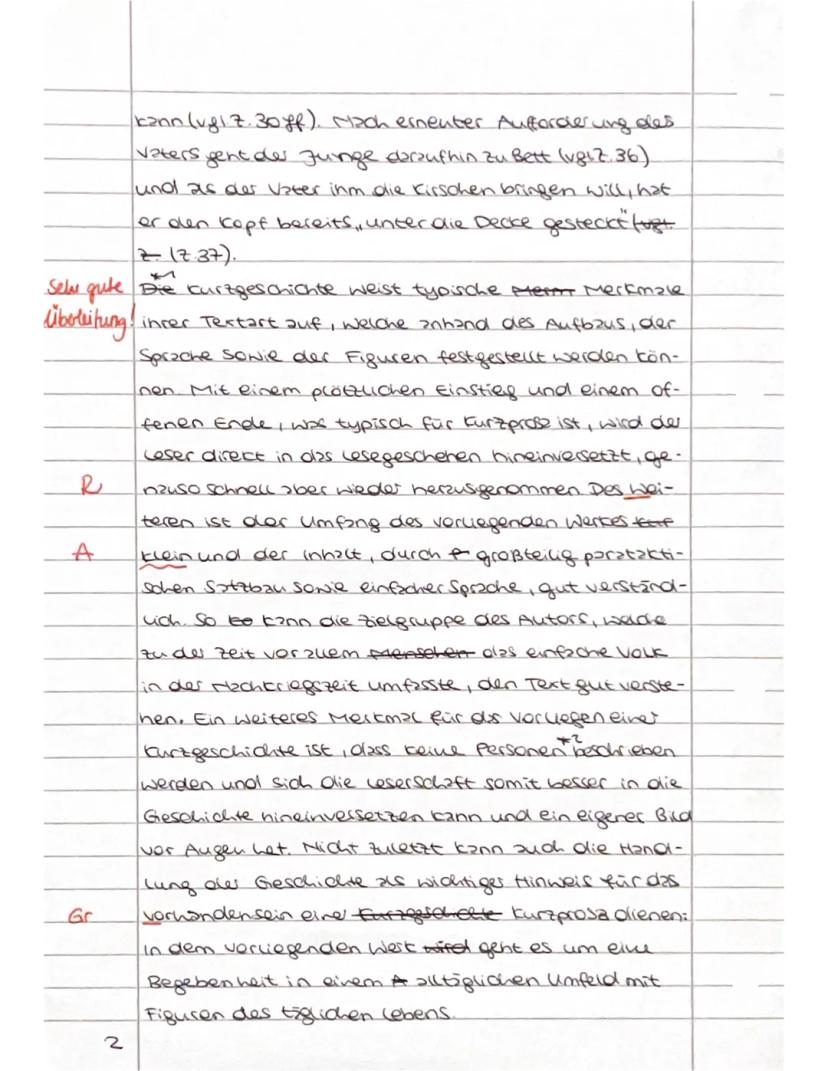 kann (vgl. Z. 30 ff). Nach erneuter Aufforderung des
Vaters geht der Junge daraufhin zu Bett (vgl. Z. 36)
und als der Vater ihm die Kirschen bringen will, hat
er den Kopf bereits „unter die Decke gesteckt" (vgl.
Z. (Z. 37).
Sehr gute Überleitung!
*1
Die Kurzgeschichte weist typische Merm Merkmale
ihrer Textart auf, welche anhand des Aufbaus, der
Sprache sowie der Figuren festgestellt werden kön-
nen. Mit einem plötzlichen Einstieg und einem of-
fenen Ende, was typisch für Kurzprosa ist, wird der
Leser direkt in das Lesegeschehen hineinversetzt, ge-
R nauso schnell aber wieder herausgenommen. Des Wei-
teren ist der Umfang des vorliegenden Werkes
A klein und der Inhalt, durch großteilig paratakti-
schen Satzbau sowie einfacher Sprache, gut verständ-
lich. So kann die Zielgruppe des Autors, welche
zu der Zeit vor allem Menschen das einfache Volk
in der Nachkriegszeit umfasste, den Text gut verste-
hen. Ein weiteres Merkmal für das Vorliegen einer
Kurzgeschichte ist, dass keine Personen *2 beschrieben
werden und sich die Leserschaft somit besser in die
Geschichte hineinversetzen kann und ein eigenes Bild
vor Augen hat. Nicht zuletzt kann auch die Hand-
lung der Geschichte als wichtiger Hinweis für das
Gr vorhandensein einer Kurzgeschichte Kurzprosa dienen:
In dem vorliegenden Werk wird geht es um eine
Begebenheit in einem A alltäglichen Umfeld mit
Figuren des täglichen Lebens.
2